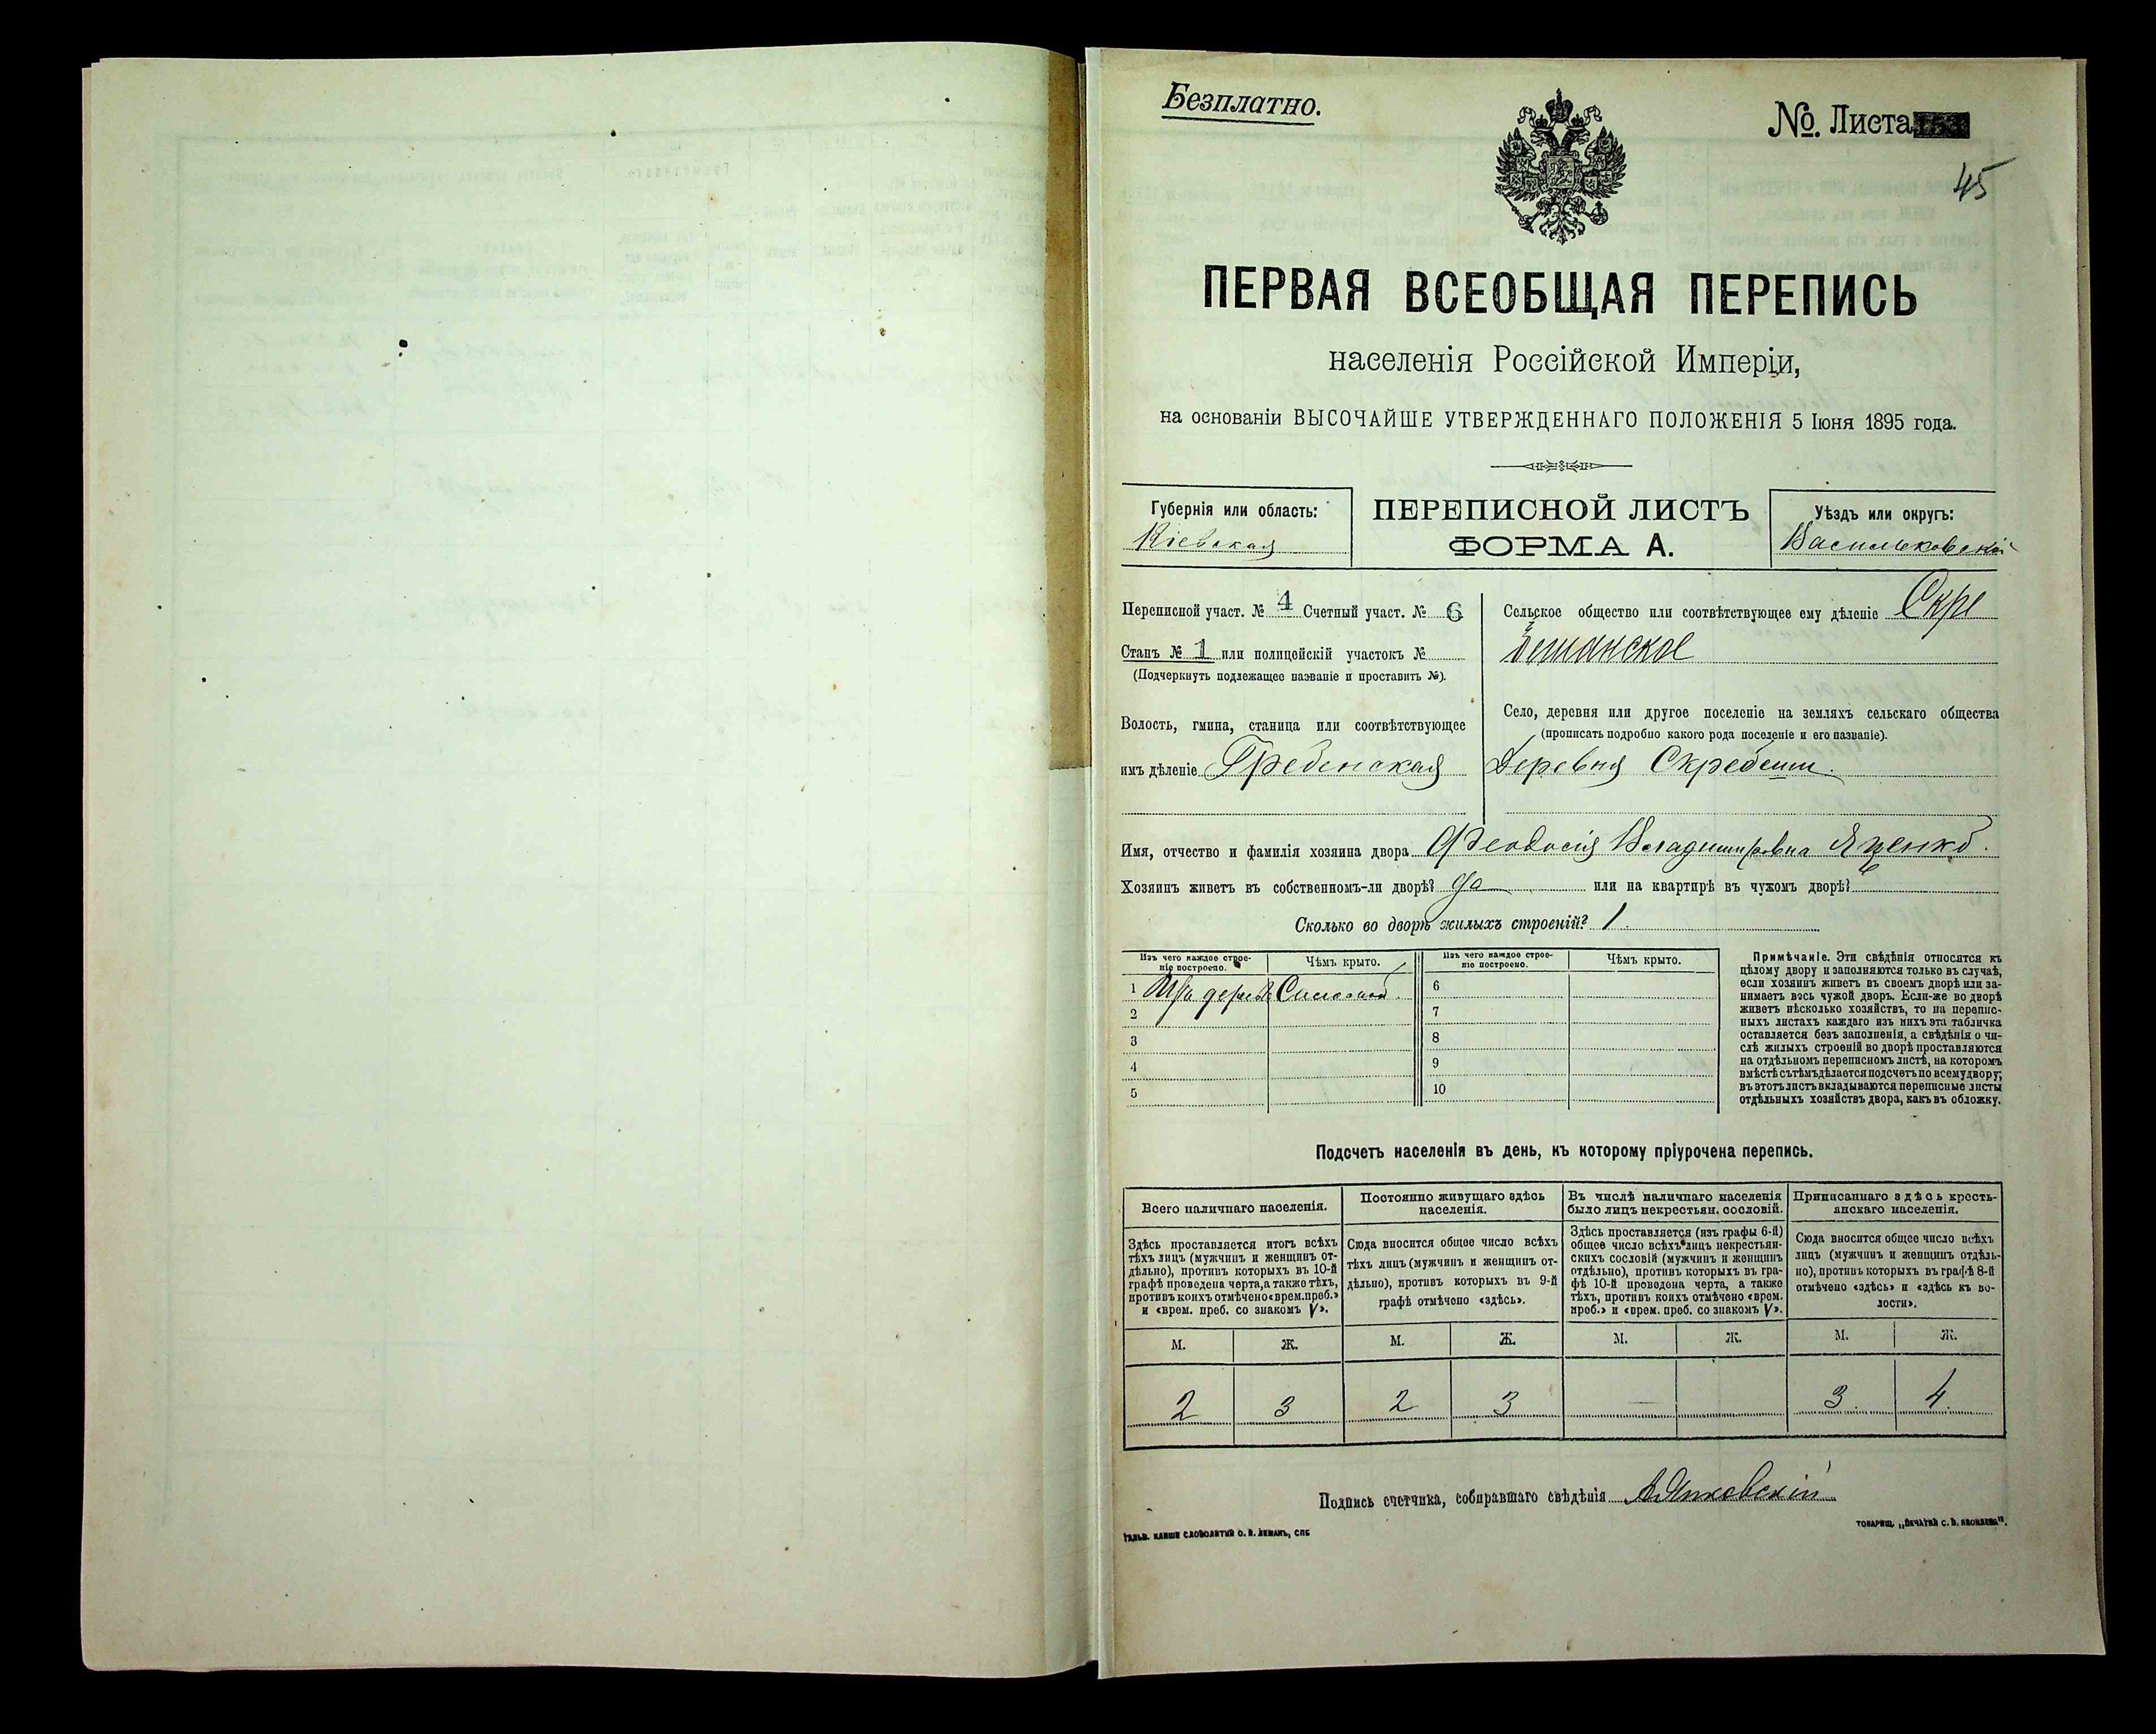 Безплатно.
№. Листа
45
ПЕРВАЯ ВСЕОБЩАЯ ПЕРЕПИСЬ
населенія Россійской Имперіи,
на основаніи ВЫСОЧАЙШЕ УТВЕРЖДЕННАГО ПОЛОЖЕНІЯ 5 Іюня 1895 года.
Губернія или область:
Кіевская
ПЕРЕПИСНОЙ ЛИСТЪ
ФОРМА А.
Уѣздъ или округъ:
Васильковскій
Переписной участ. № 4 Счетный участ. № 6
Станъ № 1 или полицейскій участокъ №
(Подчеркнуть подлежащее названіе и проставить №).
Волость, гмина, станица или соотвѣтствующее
имъ дѣленіе Гребенская
Сельское общество или соотвѣтствующее ему дѣленіе Скре
бешанское
Село, деревня или другое поселеніе на земляхъ сельскаго общества
(прописать подробно какого рода поселеніе и его названіе).
Деревня Скребеши.
Имя, отчество и фамилія хозяина двора Феодосія Владимировна Яценко.
Хозяинъ живетъ въ собственномъ-ли дворѣ? да или на квартирѣ въ чужомъ дворѣ?
Сколько во дворѣ жилыхъ строеній? 1
Изъ чего каждое строе-
ніе построено.
Чѣмъ крыто.
Изъ чего каждое строе-
ніе построено.
Чѣмъ крыто.
1 Соломой.
2
3
4
5
6
7
8
9
10
Примѣчаніе. Эти свѣдѣнія относятся къ
цѣлому двору и заполняются только въ случаѣ,
если хозяинъ живетъ въ своемъ дворѣ или за-
нимаетъ весь чужой дворъ. Если-же во дворѣ
живетъ нѣсколько хозяйствъ, то на перепис-
ныхъ листахъ каждаго изъ нихъ эта табличка
оставляется безъ заполненія, а свѣдѣнія о чи-
слѣ жилыхъ строеній во дворѣ проставляются
на отдѣльномъ переписномъ листѣ, на которомъ
вмѣстѣ съ тѣмъ дѣлается подсчетъ по всему двору;
въ этотъ листъ вкладываются переписные листы
отдѣльныхъ хозяйствъ двора, какъ въ обложку.
Подсчетъ населенія въ день, къ которому пріурочена перепись.
Всего наличнаго населенія.
Здѣсь проставляется итогъ всѣхъ
тѣхъ лицъ (мужчинъ и женщинъ от-
дѣльно), противъ которыхъ въ 10-й
графѣ проведена черта, а также тѣхъ,
противъ коихъ отмѣчено «врем. преб.»
и «врем. преб. со знакомъ V».
Постоянно живущаго здѣсь
населенія.
Сюда вносится общее число всѣхъ
тѣхъ лицъ (мужчинъ и женщинъ от-
дѣльно), противъ которыхъ въ 9-й
графѣ отмѣчено «здѣсь».
Въ числѣ наличнаго населенія
было лицъ некрестьян. сословій.
Здѣсь проставляется (изъ графы 6-й)
общее число всѣхъ лицъ некрестьян-
скихъ сословій (мужчинъ и женщинъ
отдѣльно), противъ которыхъ въ гра-
фѣ 10-й проведена черта, а также
тѣхъ, противъ коихъ отмѣчено «врем.
преб.» и «врем. преб. со знакомъ V».
Приписаннаго здѣсь кресть-
янскаго населенія.
Сюда вносится общее число всѣхъ
лицъ (мужчинъ и женщинъ отдѣль-
но), противъ которыхъ въ графѣ 8-й
отмѣчено «здѣсь» и «здѣсь къ во-
лости».
М. Ж. М. Ж. М. Ж. М. Ж.
2 3 2 3 3 4
Подпись счетчика, собиравшаго свѣдѣнія
ГАЛЬВ. КЛИШЕ СЛОВОЛИТНИ О. И. ЛЕМАНЪ, СПБ
ТОВАРИЩ. „ПЕЧАТНИ С. П. ЯКОВЛЕВА".